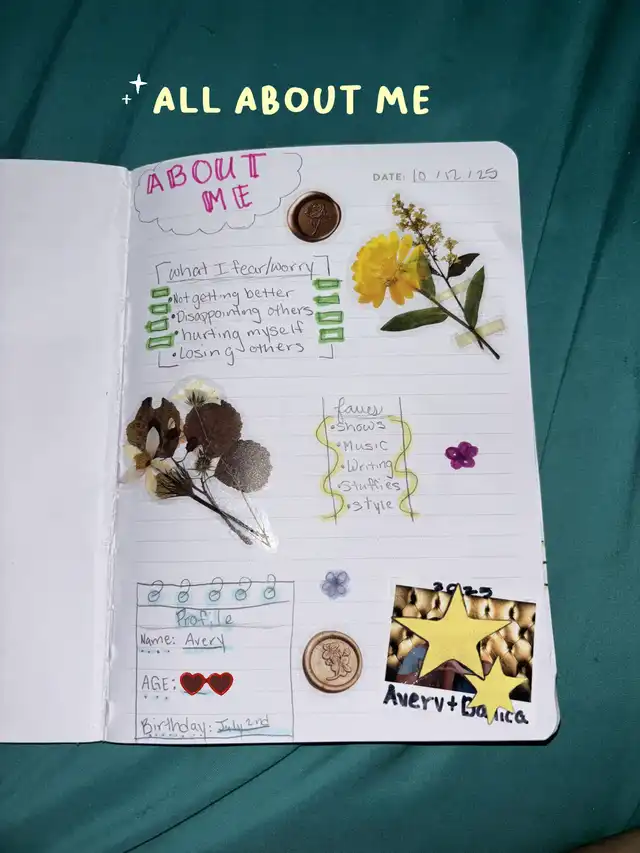 ALL ABOUT ME
ABOUT
ME
DATE: 10/12/25
What I fear/worry
• Not getting better
• Disappointing others
• hurting myself
• Losing others
faves
• Shows
• Music
• Writing
• Stuffies
• Style
Profile
Name: Avery
AGE:
Birthday: July 2nd
2025
Avery + Danica